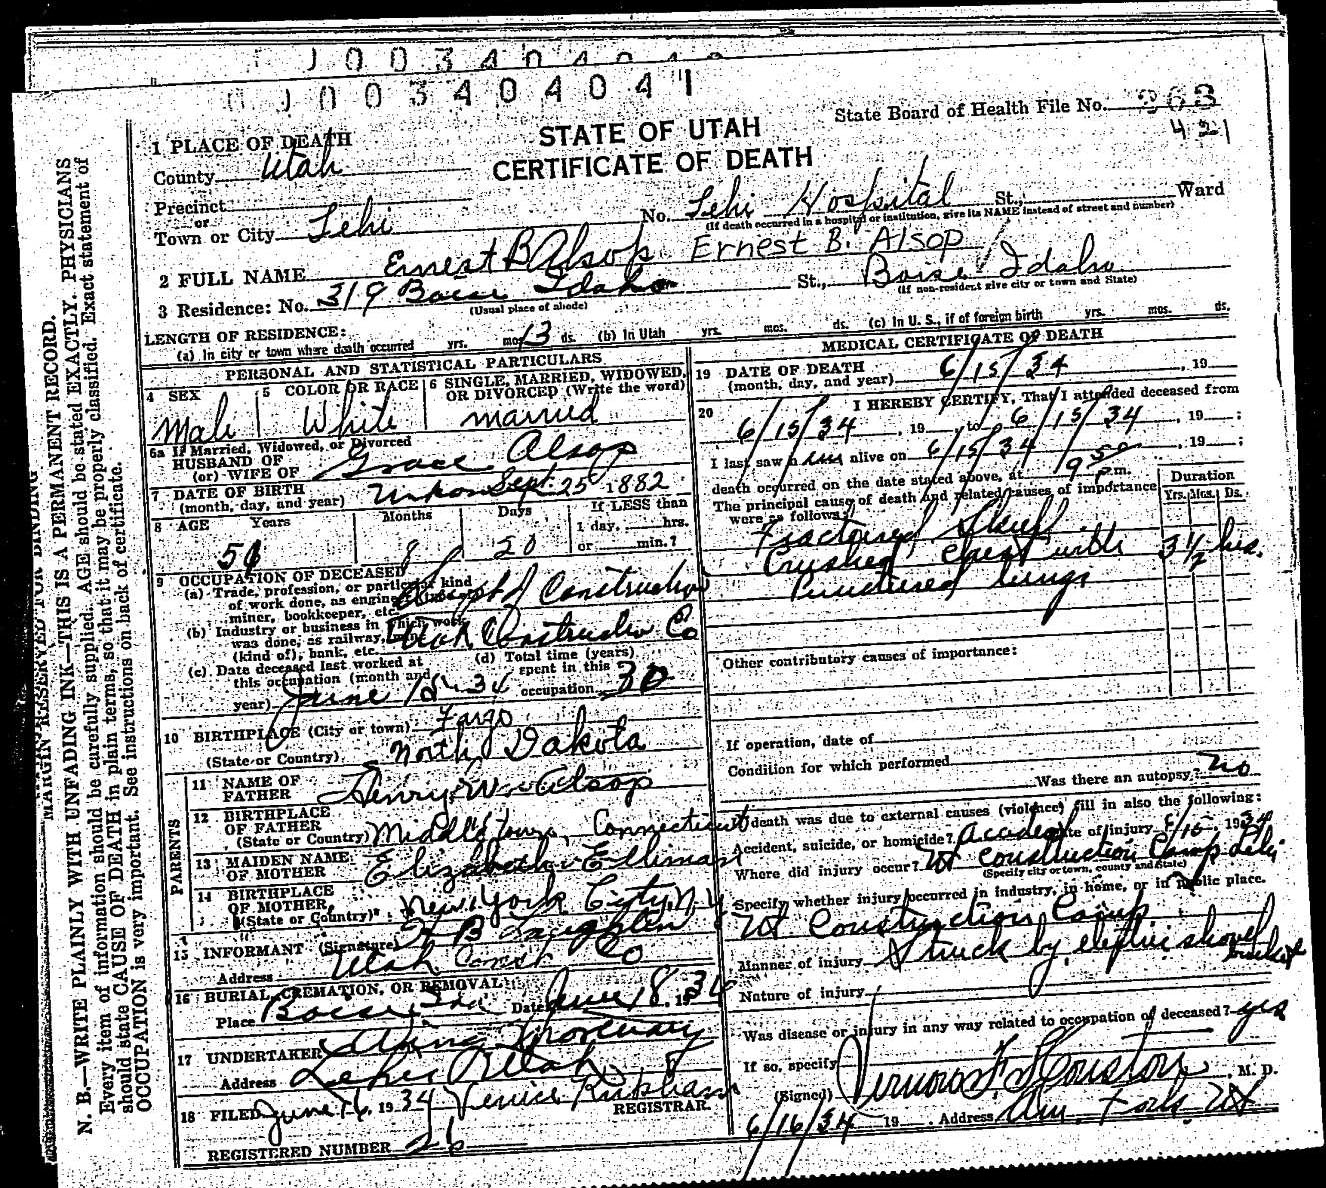 0034040
003404041
State Board of Health File No. 363
421
STATE OF UTAH
CERTIFICATE OF DEATH
1 PLACE OF DEATH
County Utah
Precinct
or
Town or City Lehi No. Lehi Hospital St., Ward
(If death occurred in a hospital or institution, give its NAME instead of street and number)
2 FULL NAME Ernest B Alsop Ernest B. Alsop
3 Residence: No. 319 Boise Idaho St., Boise, Idaho
(Usual place of abode) (If non-resident give city or town and State)
LENGTH OF RESIDENCE:
(a) In city or town where death occurred yrs. mos. 13 ds. (b) In Utah yrs. mos. ds. (c) In U. S., if of foreign birth yrs. mos. ds.
PERSONAL AND STATISTICAL PARTICULARS
4 SEX Male
5 COLOR OR RACE White
6 SINGLE, MARRIED, WIDOWED, OR DIVORCED (Write the word) married
6a If Married, Widowed, or Divorced
HUSBAND OF
(or) WIFE OF Grace Alsop
7 DATE OF BIRTH
(month, day, and year) Sept. 25 1882
8 AGE Years Months Days If LESS than
1 day, hrs.
or min.?
51 8 20
9 OCCUPATION OF DECEASED
(a) Trade, profession, or particular kind
of work done, as engineer,
miner, bookkeeper, etc. Supt of Construction
(b) Industry or business in which work
was done, as railway,
(kind of), bank, etc. Utah Construction Co
(c) Date deceased last worked at
this occupation (month and
year) June 15 - 34
(d) Total time (years)
spent in this
occupation 30
10 BIRTHPLACE (City or town) Fargo
(State or Country) North Dakota
PARENTS
11 NAME OF
FATHER Henry W. Alsop
12 BIRTHPLACE
OF FATHER
(State or Country) Middletown, Connecticut
13 MAIDEN NAME
OF MOTHER Elizabeth Elliman
14 BIRTHPLACE
OF MOTHER
(State or Country) New York City, N.Y
15 INFORMANT (Signature) B Laughlin
Address Utah Const Co
16 BURIAL, CREMATION, OR REMOVAL
Place Boise Ida Date June 18. 1934
17 UNDERTAKER Mortuary
Address Lehi Utah
18 FILED June 16, 1934 Venice Kirkham
REGISTRAR.
REGISTERED NUMBER 26
MEDICAL CERTIFICATE OF DEATH
19 DATE OF DEATH
(month, day, and year) 6/15/34, 19
20 I HEREBY CERTIFY, That I attended deceased from
6/15/34, 19, to 6/15/34, 19;
I last saw him alive on 6/15/34, 19;
death occurred on the date stated above, at 9 50 p.m.
The principal cause of death and related causes of importance
were as follows:
Duration
Yrs. Mos. Ds.
Fractured Skull
Crushed Chest with 3 1/2 hrs.
Punctured lungs
Other contributory causes of importance:
If operation, date of
Condition for which performed
Was there an autopsy? No
If death was due to external causes (violence) fill in also the following:
Accident, suicide, or homicide? Accident Date of injury 6/15 - 1934
Where did injury occur? Ut Construction Camp Lehi
(Specify city or town, county and State)
Specify whether injury occurred in industry, in home, or in public place.
Ut Construction Camp
Manner of injury Struck by electric shovel
bucket
Nature of injury
Was disease or injury in any way related to occupation of deceased? yes
If so, specify
(Signed) Vernon F. Houston, M. D.
6/16/34 19 Address Am. Fork. Ut
MARGIN RESERVED FOR BINDING
N. B.—WRITE PLAINLY WITH UNFADING INK—THIS IS A PERMANENT RECORD.
Every item of information should be carefully supplied. AGE should be stated EXACTLY. PHYSICIANS
should state CAUSE OF DEATH in plain terms, so that it may be properly classified. Exact statement of
OCCUPATION is very important. See instructions on back of certificate.